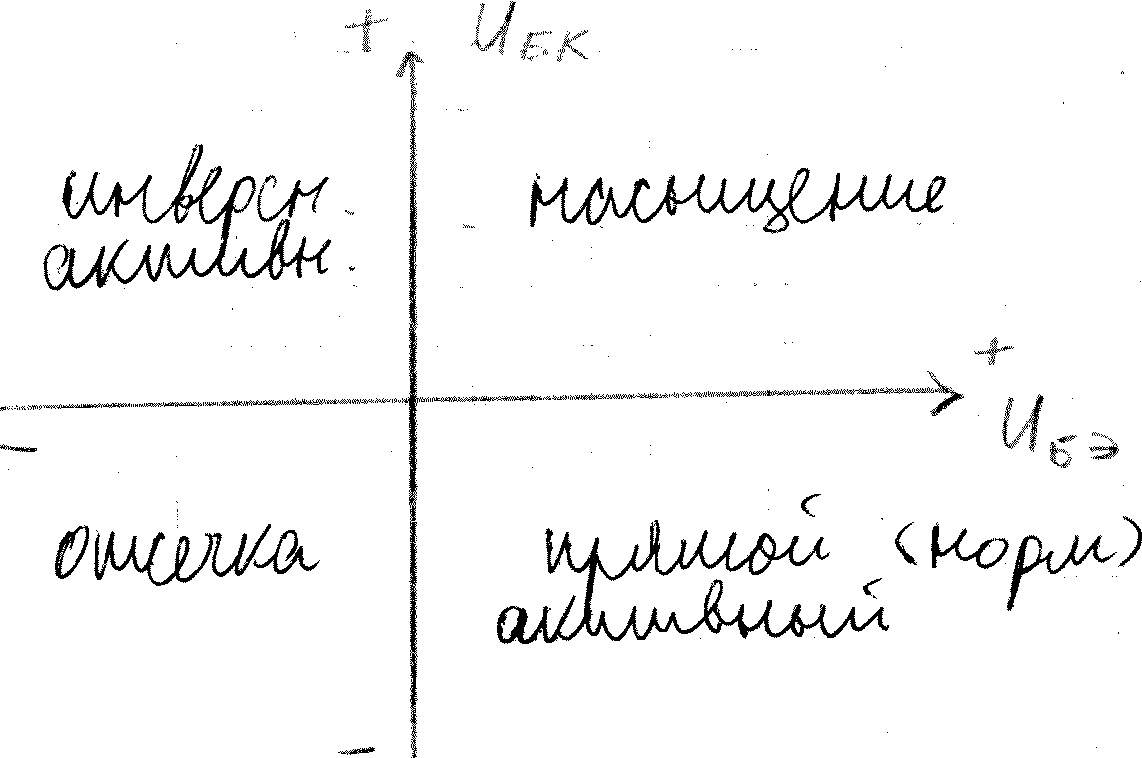 + U Б.К
инверсн.
активн.
насыщение
+
U Б Э
−
отсечка
прямой (норм)
активный
−